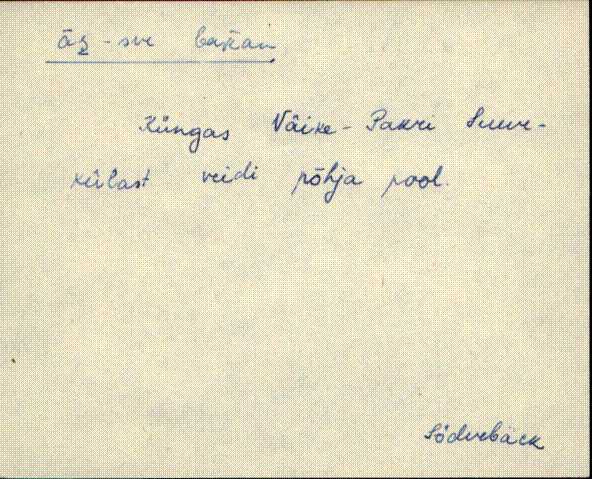 äg-sve bakan
Küngas Väike-Pakri Suur-
külast veidi põhja pool.
Söderbäck